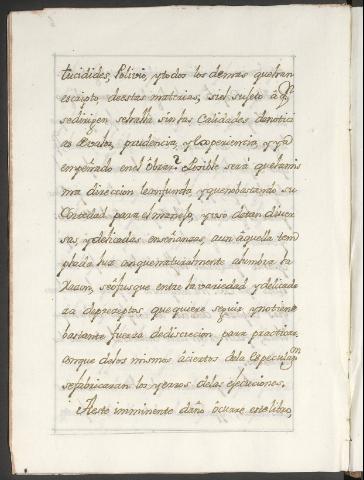 tucidides, Polivio, y todos los demas que han
escripto, de estas matrias, si el sujeto â qn.
se dirigen se halla sin las Calidades de notici
as Exalta, prudencia, y Experiencia, y ya
empeñado en el ôbrar? Posible será que la mis
ma direccion le confunda, y que no bastando su
Cortedad para el manejo, y uso de tan diuer
sas, y delicadas enseñanzas, aun âquella tem
plada luz con que naturalmente alumbra la
Razon, se ôfusque entre la variedad y delicade
za de preceptos que quiere seguir y no tiene
bastante fuerza de discrecion, para practicar
con que de los mismos âciertos de la Especulaon.
se fabricaran los yerros de las ejecuciones.
A este imminente daño ôcurre este libro,